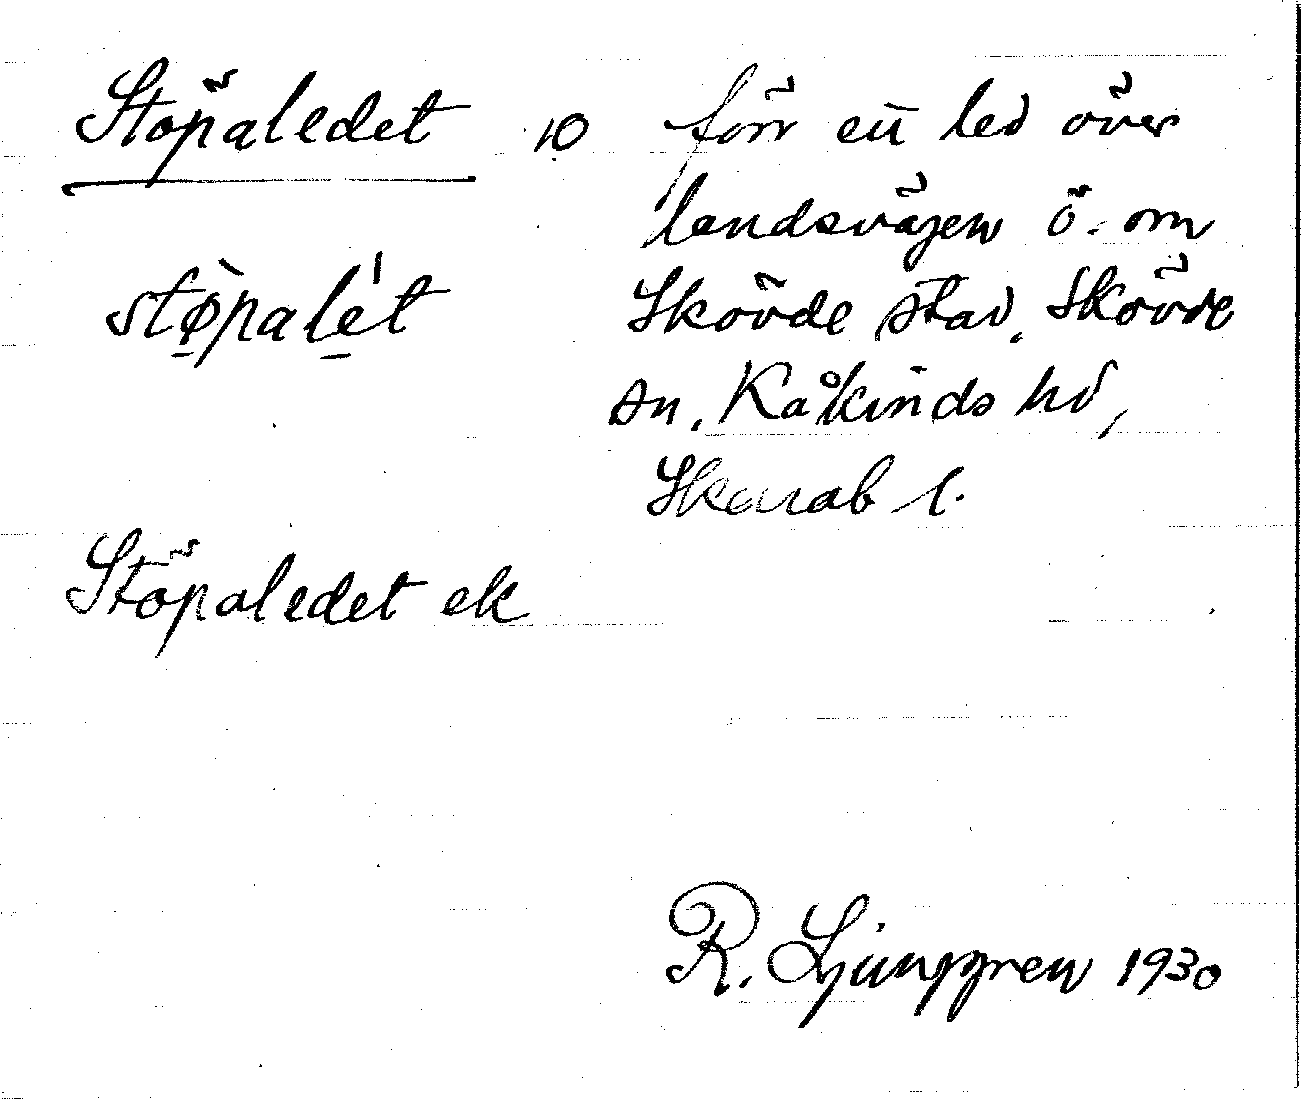 Stöpaledet 10 förr ett led över
landsvägen ö. om
stø̀palét Skövde stad. Skövde
sn. Kåkinds hd,
Skarab l.
Stöpaledet ek
R. Ljunggren 1930